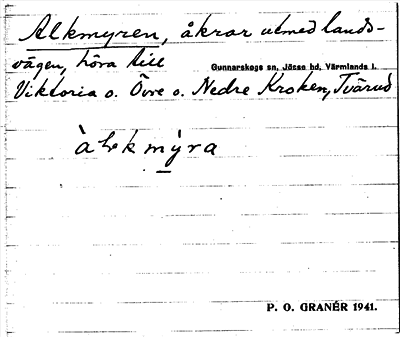 Alkmyren, åkrar utmed lands-
vägen, höra till
Gunnarskogs sn, Jösse hd, Värmlands l.
Viktoria o. Övre o. Nedre Kroken, Tvärud
àlkmýra
P. O. GRANÉR 1941.